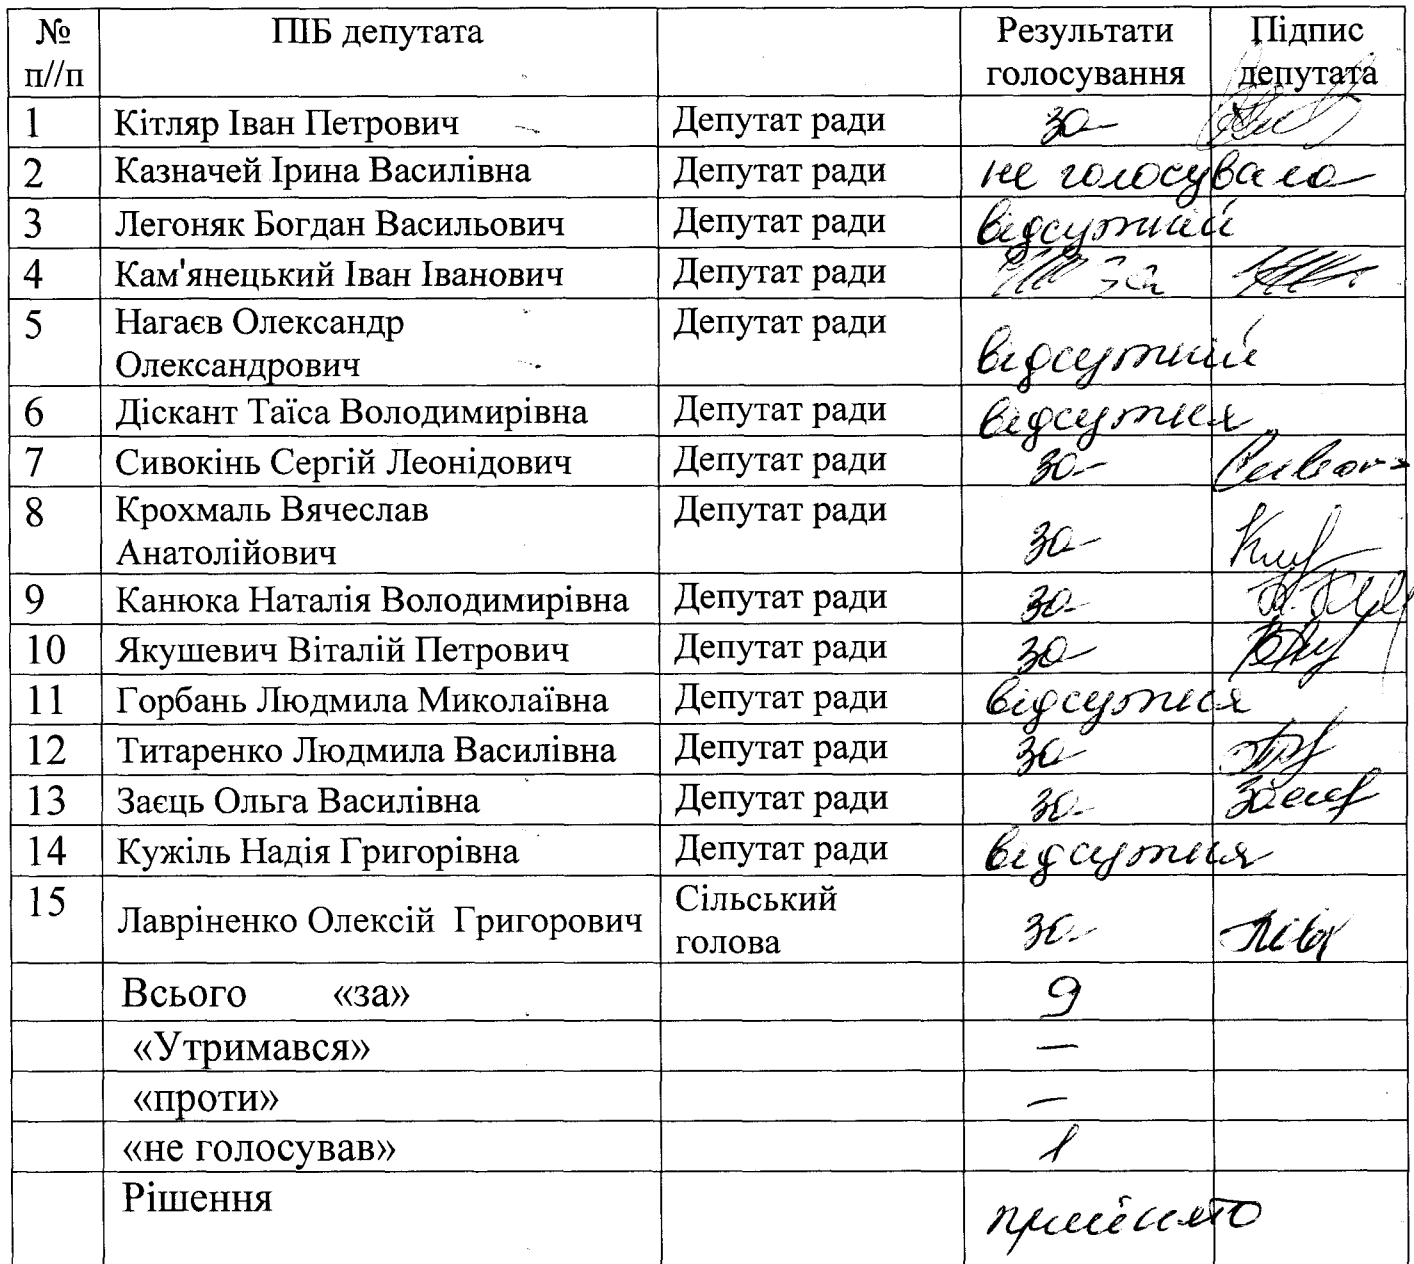 № п//п ПІБ депутата Результати голосування Підпис депутата
1 Кітляр Іван Петрович Депутат ради за
2 Казначей Ірина Василівна Депутат ради не голосувала
3 Легоняк Богдан Васильович Депутат ради відсутній
4 Кам'янецький Іван Іванович Депутат ради за
5 Нагаєв Олександр Олександрович Депутат ради відсутній
6 Діскант Таїса Володимирівна Депутат ради відсутня
7 Сивокінь Сергій Леонідович Депутат ради за
8 Крохмаль Вячеслав Анатолійович Депутат ради за
9 Канюка Наталія Володимирівна Депутат ради за
10 Якушевич Віталій Петрович Депутат ради за
11 Горбань Людмила Миколаївна Депутат ради відсутня
12 Титаренко Людмила Василівна Депутат ради за
13 Заєць Ольга Василівна Депутат ради за
14 Кужіль Надія Григорівна Депутат ради відсутня
15 Лавріненко Олексій Григорович Сільський голова за
Всього «за» 9
«Утримався» –
«проти» –
«не голосував» 1
Рішення прийнято